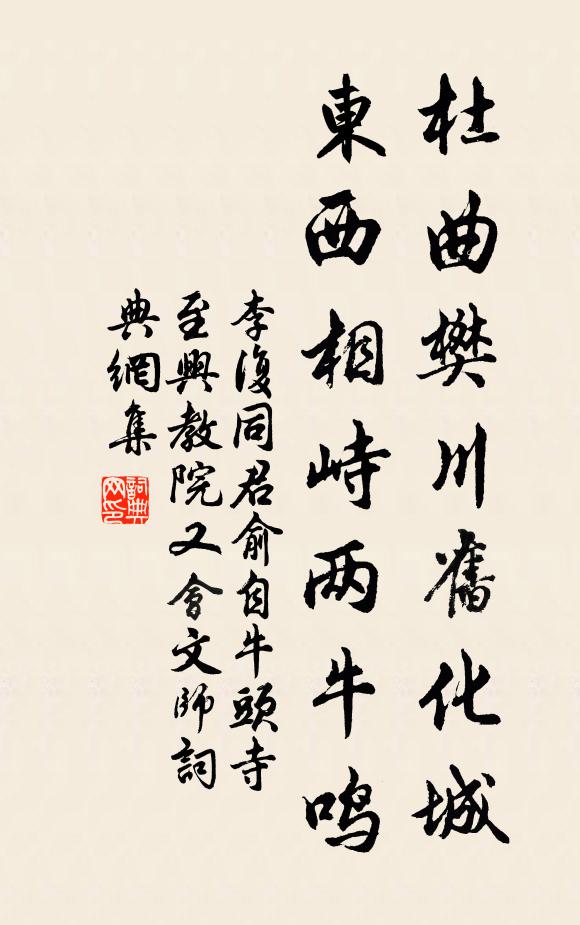 杜曲樊川舊化城
東西相峙两牛鸣
李復同君俞自牛頭寺
至興教院又會文师詞
典網集
詞典网印